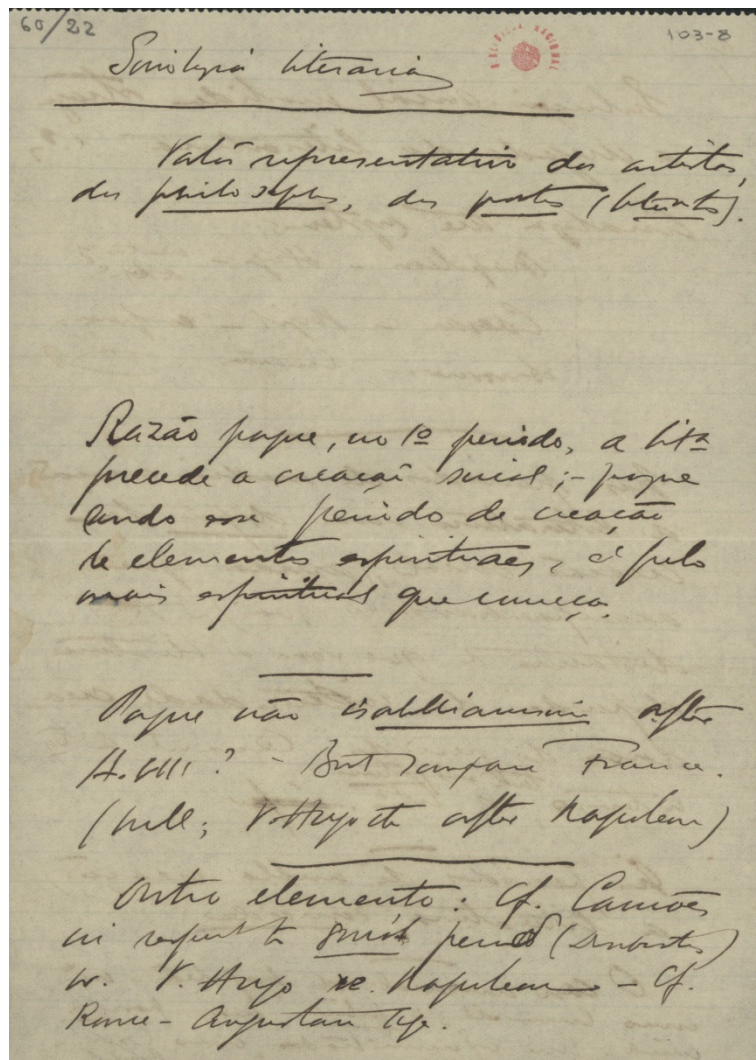 60/22
103-8
BIBLIOTECA NACIONAL
Sociologia literaria
Valôr representativo dos artistas,
dos philosophos, dos poetas (literatos).
Razão porque, no 1º periodo, a litª
precede a creação social; - porque
sendo esse periodo de creação
de elementos espirituaes, é pelo
mais espiritual que começa.
Porque não isabellianismo after
H. VIII? - But compare France.
(well; V. Hugo etc after Napoleon)
Outro elemento: Cf. Camões
in respect to social period
w. V. Hugo re. Napoleon - Cf.
Rome - Augustan Age.